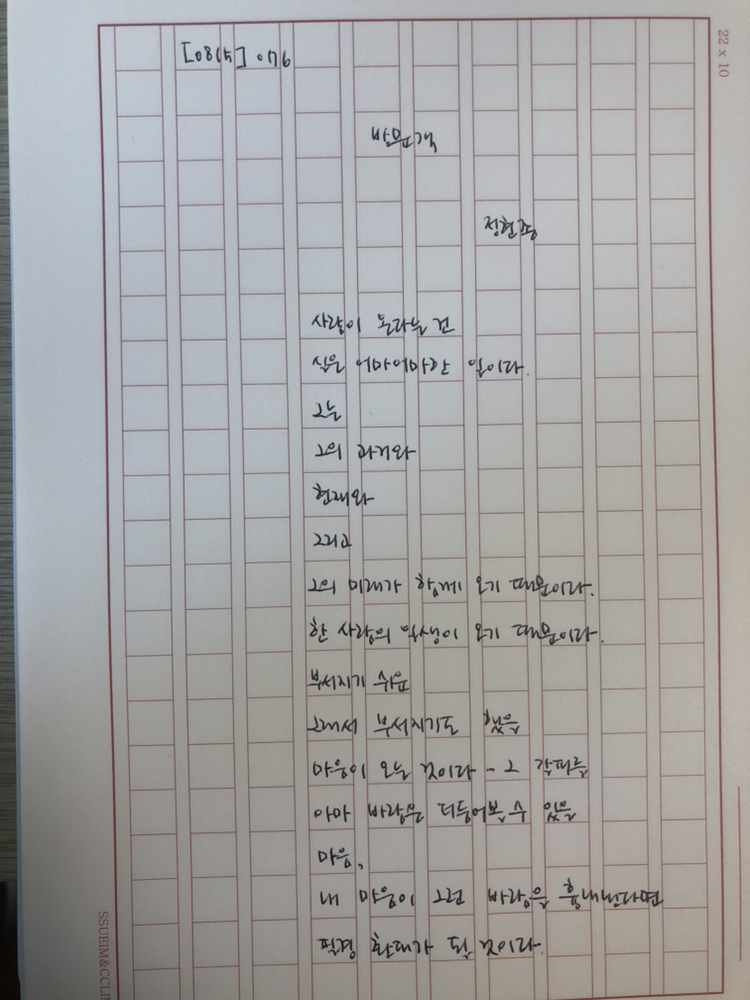 22 x 10
[0815] 076
방문객
정현종
사람이 온다는 건
실은 어마어마한 일이다.
그는
그의 과거와
현재와
그리고
그의 미래가 함께 오기 때문이다.
한 사람의 일생이 오기 때문이다.
부서지기 쉬운
그래서 부서지기도 했을
마음이 오는 것이다 - 그 갈피를
아마 바람은 더듬어볼 수 있을
마음,
내 마음이 그런 바람을 흉내낸다면
필경 환대가 될 것이다.